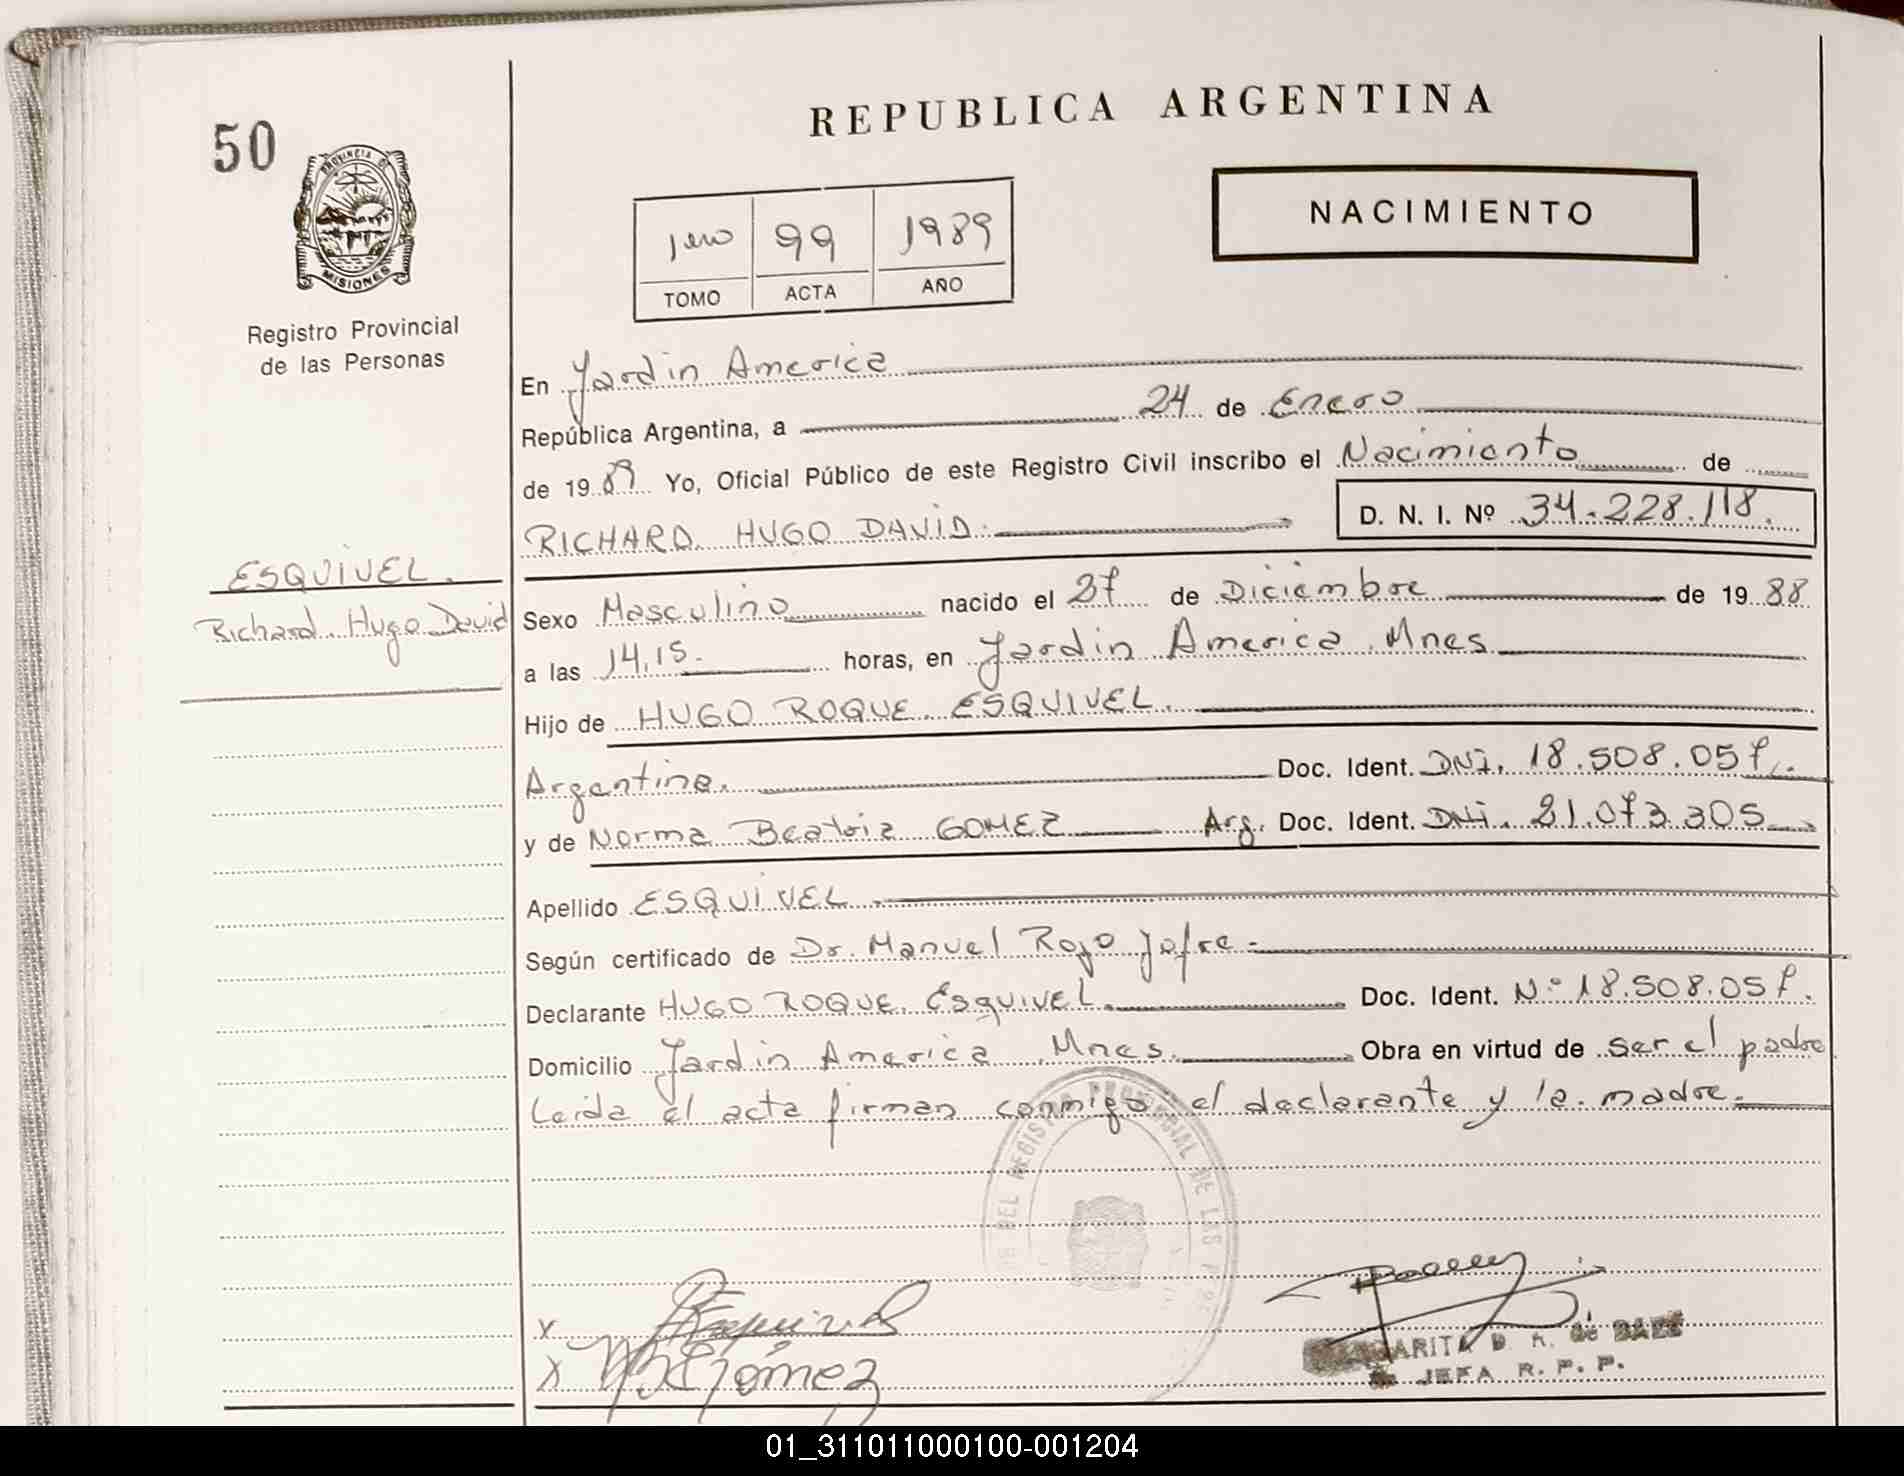 REPUBLICA ARGENTINA
50
PROVINCIA DE
MISIONES
Registro Provincial
de las Personas
NACIMIENTO
1ero 99 1989
TOMO ACTA AÑO
En Jardin America
República Argentina, a 24 de Enero
de 1989 Yo, Oficial Público de este Registro Civil inscribo el Nacimiento de
RICHARD HUGO DAVID. D. N. I. Nº 34.228.118.
ESQUIVEL.
Richard Hugo David
Sexo Masculino nacido el 27 de Diciembre de 1988
a las 14.15. horas, en Jardin America Mnes
Hijo de HUGO ROQUE ESQUIVEL.
Argentina. Doc. Ident. DNi. 18.508.057.
y de Norma Beatriz GOMEZ Arg. Doc. Ident. DNi. 21.073.305
Apellido ESQUIVEL.
Según certificado de Dr. Manuel Rojo Jofre
Declarante HUGO ROQUE ESQUIVEL. Doc. Ident. N° 18.508.057.
Domicilio Jardin America Mnes. Obra en virtud de ser el padre
Leida el acta firman conmigo el declarante y la madre.
DEL REGISTRO PROVINCIAL DE LAS
x Esquivel
x Gómez
MARGARITA D. A. de BAEZ
JEFA R. P. P.
01_311011000100-001204